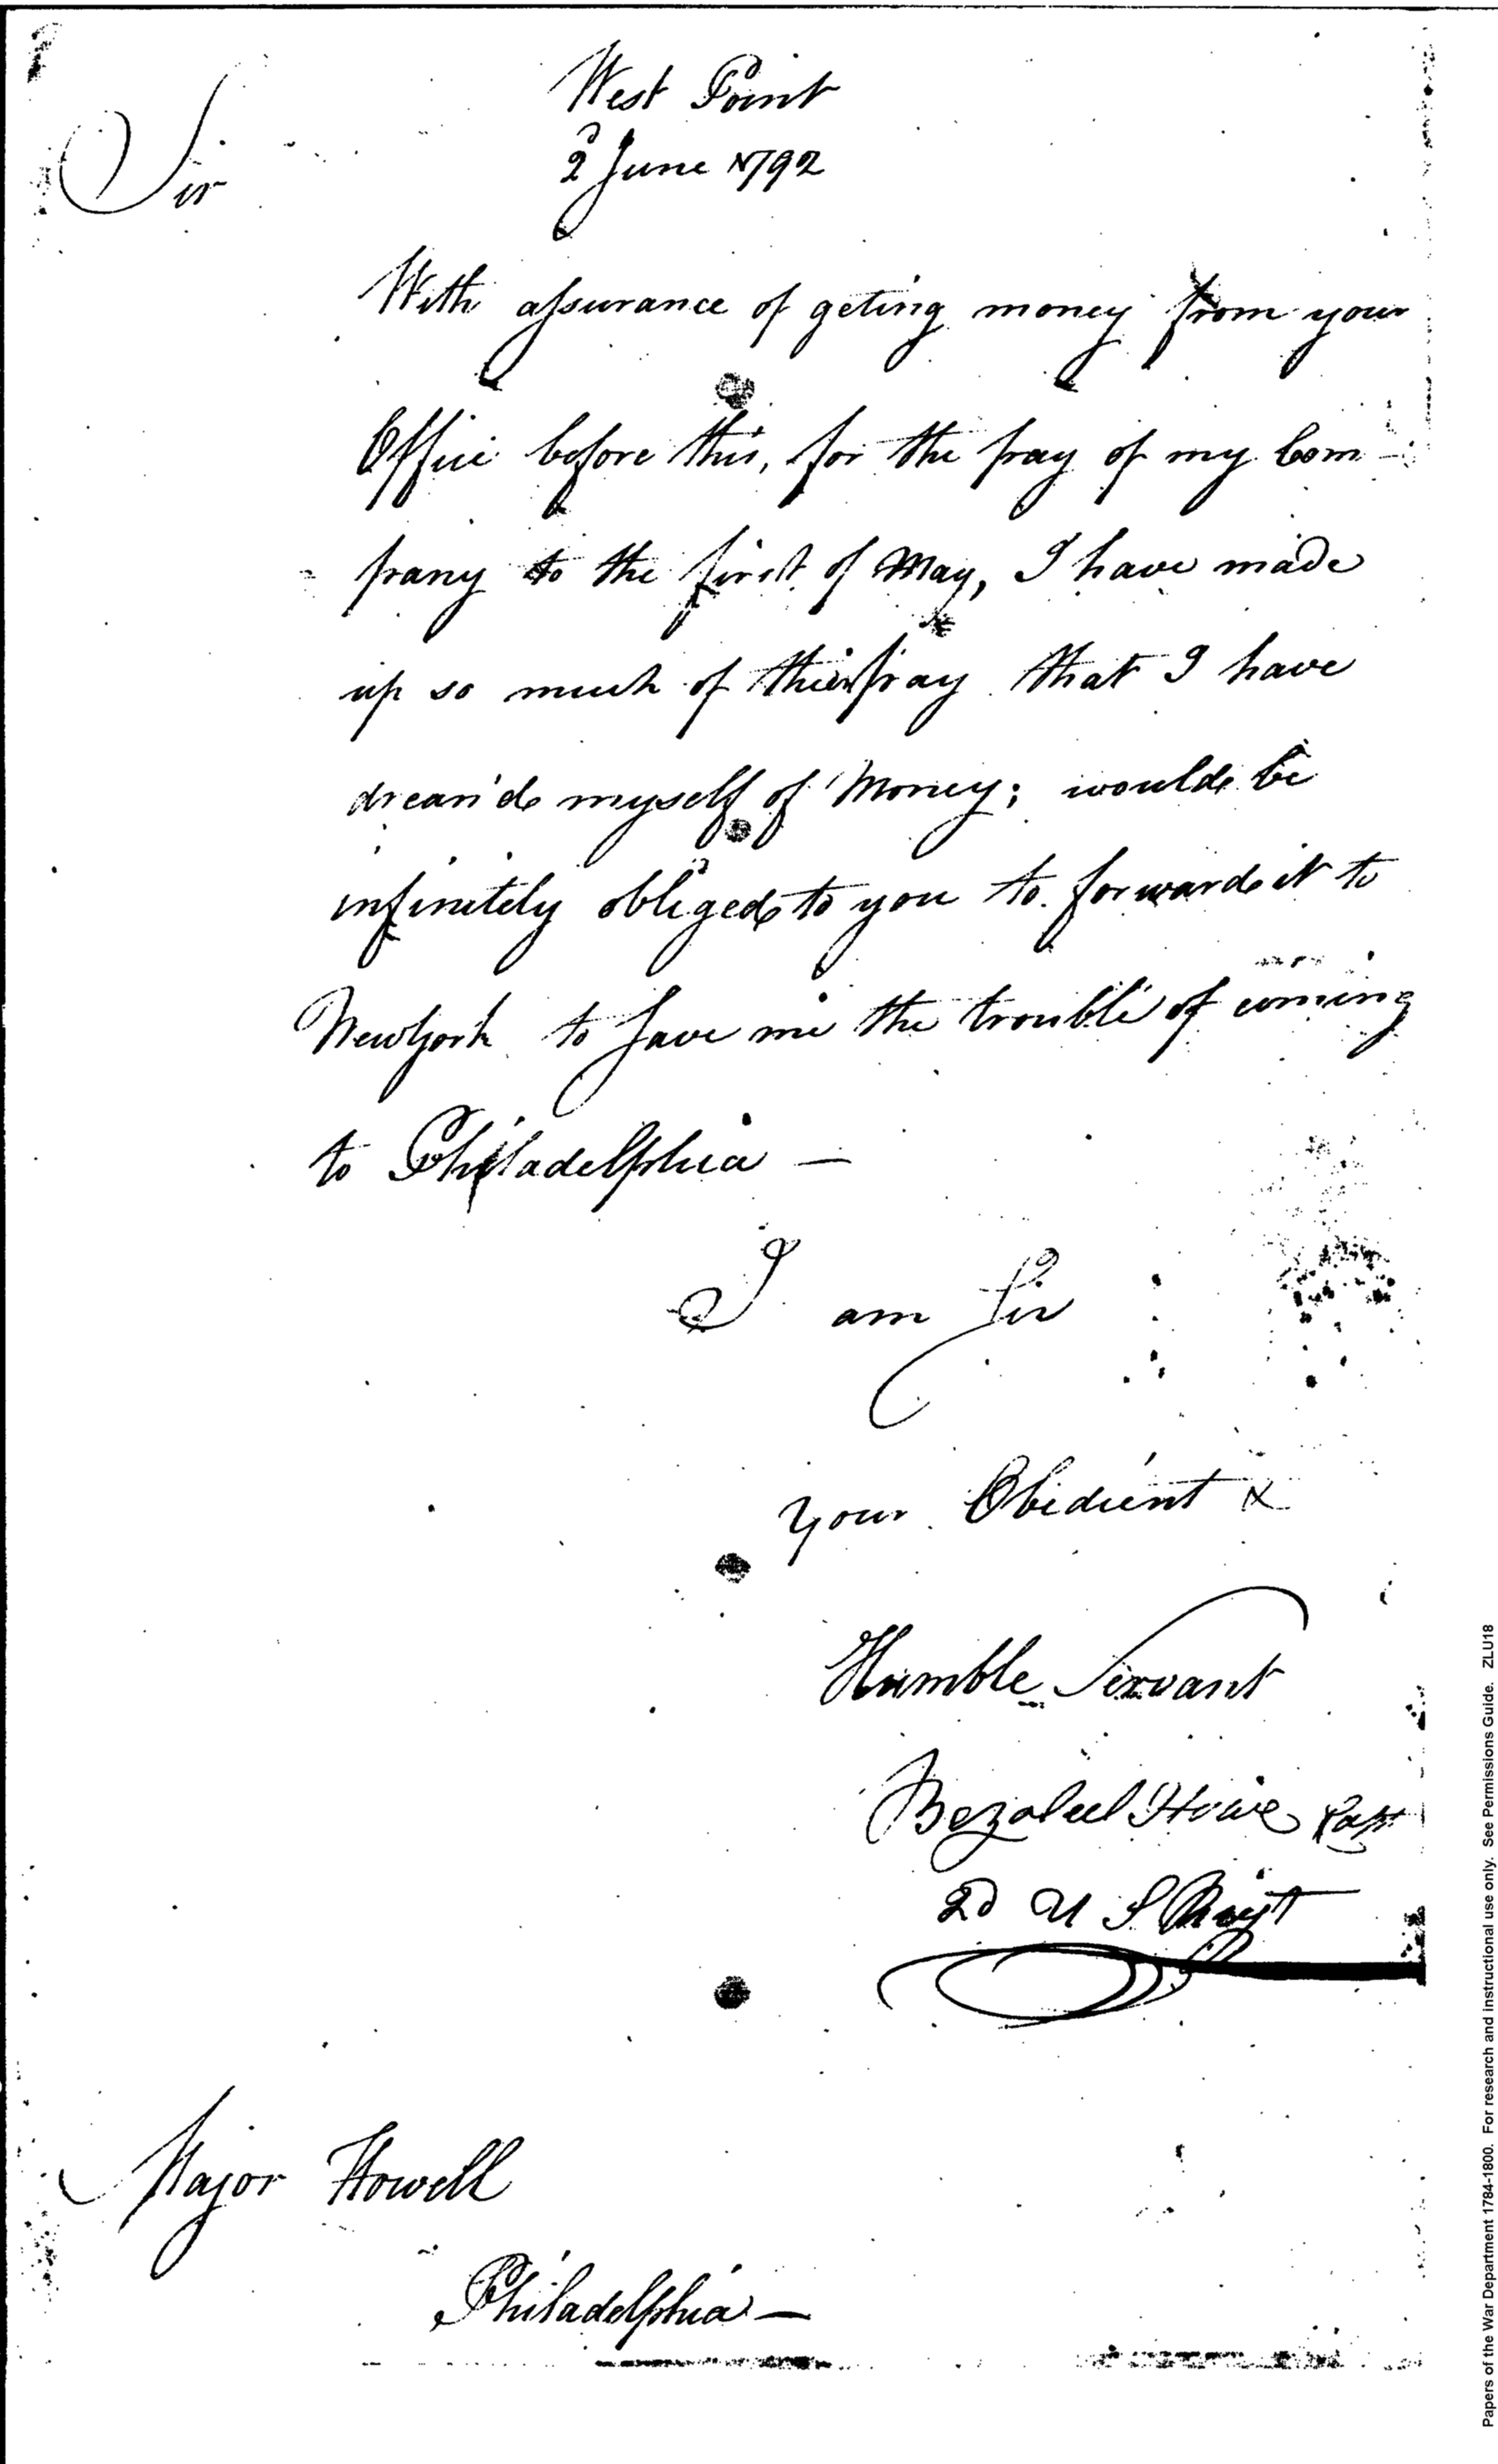 West Point
2d June 1792
Sir
With assurance of geting money from your
Office before this, for the pay of my Com-
pany to the first of May, I have made
up so much of their pay that I have
drean'd myself of Money; would be
infinitely obliged to you to forward it to
NewYork to save me the trouble of coming
to Philadelphia —
I am Sir
your Obedient &
Humble Servant
Bezaleel Howe Capt
2d U S Regt
Major Howell
Philadelphia —
Papers of the War Department 1784-1800. For research and instructional use only. See Permissions Guide. ZLU18